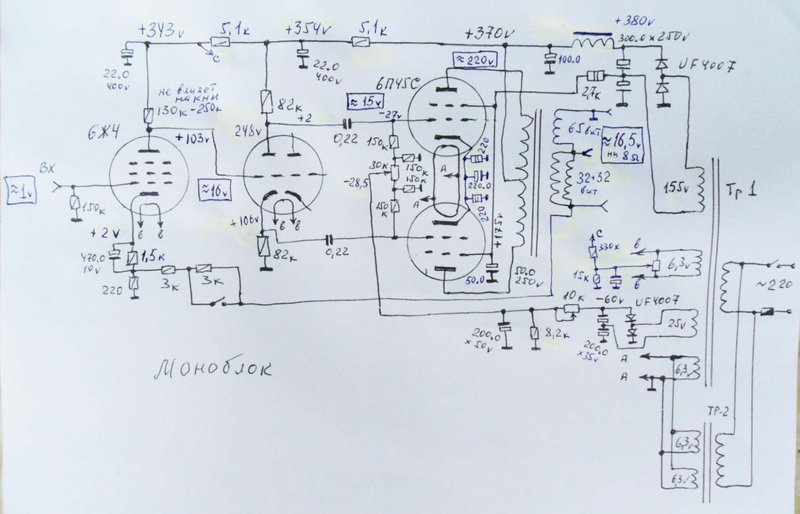 +343v
5,1к
+354v
5,1к
+370v
+380v
300.0 x 250v
UF4007
С
22.0
400v
22.0
400v
≈220v
100.0
2,7к
не влияет
на кни
130к -250к
82к
6П45С
≈15v
-27v
+2
0,22
6Ж4
+103v
248v
150к
30к
150к
150к
150к
-28,5
220
220.0
220
А
А
65вит
≈16,5v
на 8Ω
32+32
вит
155v
Тр 1
Вх
≈1v
150к
≈16v
+106v
82к
0,22
+175v
50.0
50.0
250v
+2v
470,0
10v
1,5к
220
3к
3к
в
в
в
в
С
330к
15к
в
в
6,3v
~220
10к
-60v
UF4007
25v
200.0
x50v
8,2к
200.0
x35v
А
А
6,3v
Моноблок
ТР-2
6,3v
6,3v